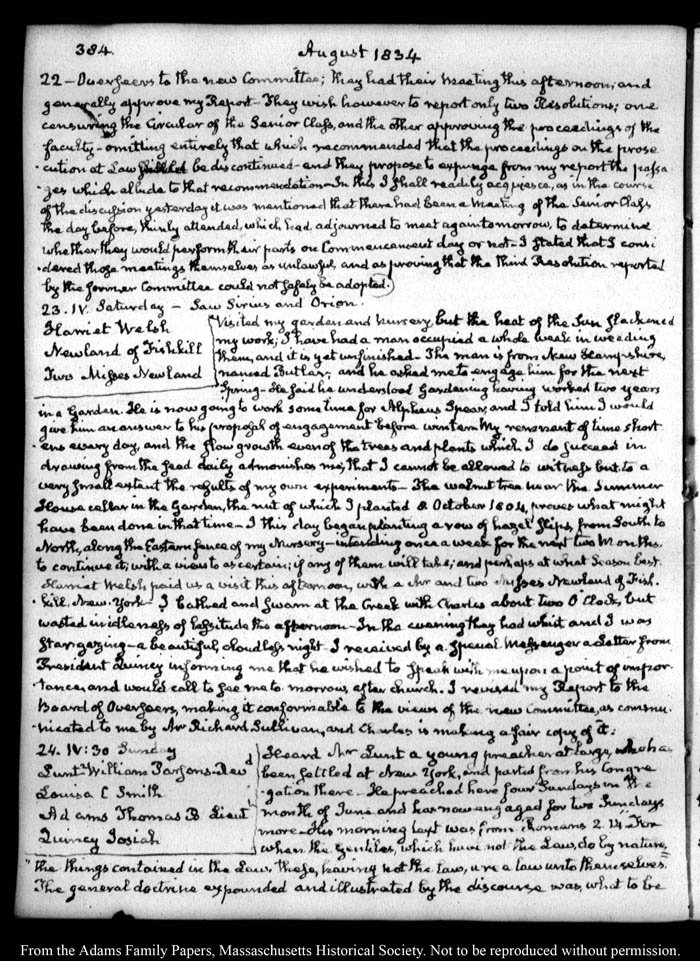 384.
August 1834
22 – Overseers to the new Committee; they had their meeting this afternoon; and
generally approve my Report – They wish however to report only two Resolutions; one
censuring the Circular of the Senior Class, and the other approving the proceedings of the
faculty – omitting entirely that which recommended that the proceedings on the prose
-cution at Law should be discontinued – and they propose to expunge from my report the passa
ges which allude to that recommendation – In this I shall readily acquiesce, as in the course
of the discussion yesterday it was mentioned that there had been a meeting of the Senior Class
the day before, thinly attended, which had adjourned to meet again tomorrow, to determine
whether they would perform their parts on Commencement day or not – I stated that I consi
-dered those meetings themselves as unlawful, and as proving that the third Resolution reported
by the former Committee could not safely be adopted.
23. IV. Saturday – Saw Sirius and Orion.
Harriet Welsh
Newland of Fishkill
Two Misses Newland
Visited my garden and nursery, but the heat of the Sun slackened
my work; I have had a man occupied a whole week in weeding
them, and it is yet unfinished – The man is from New Hampshire,
named Butlar, and he asked me to engage him for the next
Spring – He said he understood Gardening having worked two years
in a Garden. He is now going to work some time for Alpheus Spear, and I told him I would
give him an answer to his proposal of engagement before winter. My remnant of time short
-ens every day, and the slow growth even of the trees and plants which I do succeed in
drawing from the seed daily admonishes me, that I cannot be allowed to witness but to a
very small extent the results of my own experiments – The walnut tree near the Summer
House cellar in the Garden, the nut of which I planted 8 October 1804, proves what might
have been done in that time – I this day began planting a row of hazel slips, from South to
North, along the Eastern fence of my Nursery – intending once a week for the next two Months
to continue it, with a view to ascertain; if any of them will take; and perhaps at what Season best.
Harriet Welsh paid us a visit this afternoon, with a Mr and two Misses Newland of Fish.
-kill, New-York – I bathed and swam at the Creek with Charles about two O'Clock, but
wasted in idleness of lassitude the afternoon – In the evening they had whist and I was
stargazing – a beautiful, cloudless night. I received by a special Messenger a Letter from
President Quincy informing me that he wished to speak with me upon a point of impor
-tance, and would call to see me to morrow, after church. I revised my Report to the
Board of Overseers, making it conformable to the views of the new Committee, as commu
-nicated to me by Mr Richard Sullivan, and Charles is making a fair copy of it:
24. IV:30 Sunday
Lunt William Parsons – Revd
Louisa C Smith
Adams Thomas B Lieut
Quincy Josiah
Heard Mr Lunt a young preacher at large, who has
been settled at New York, and parted from his Congre
-gation there – He preached here four Sundays in the
month of June and has now engaged for two Sundays
more – His morning text was from Romans 2. 14. "For
when the Gentiles, which have not the Law, do by nature,
"the things contained in the Law, these, having not the law, are a law unto themselves."
The general doctrine expounded and illustrated by the discourse was, what to be
From the Adams Family Papers, Massachusetts Historical Society. Not to be reproduced without permission.